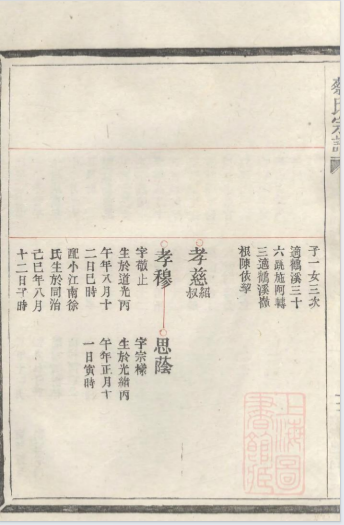 蔡氏宗譜
子一女三次
適鶴溪三十
六
三適鶴溪
根陳依
孝慈
紹
叔
孝穆
字敬止
生於道光丙
午年八月十
二日巳時
配小江南徐
氏生於同治
己巳年八月
十二日子時
思蔭
字宗樑
生於光緒丙
午年正月十
一日寅時
上海圖
書館藏